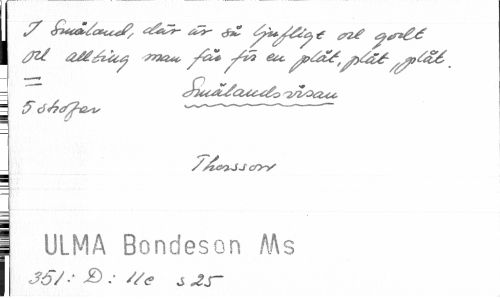 I Småland, där är så ljufligt och godt
och allting man får för en plåt, plåt, plåt.
=
5 strofer
Smålandsvisan
Thorsson
ULMA Bondeson Ms
351: D: 11e s 25